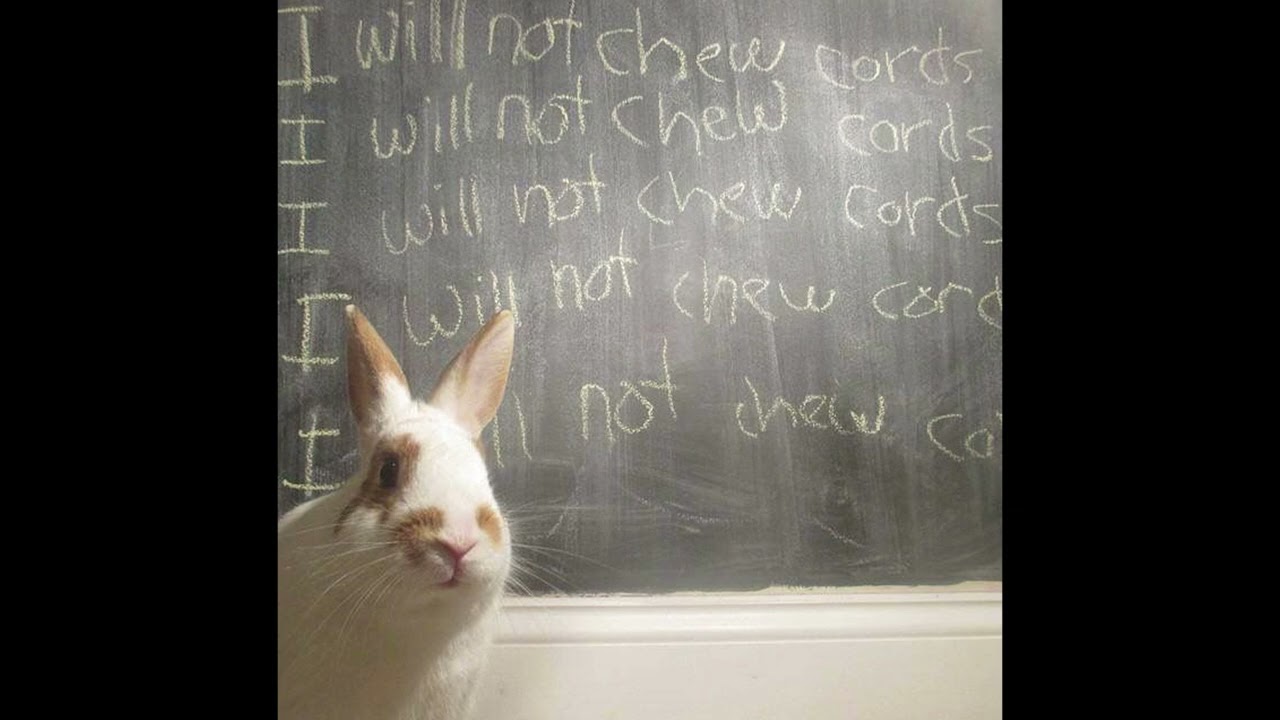 I will not chew cords
I will not chew cords
I will not chew cords
I will not chew cord
I ll not chew co